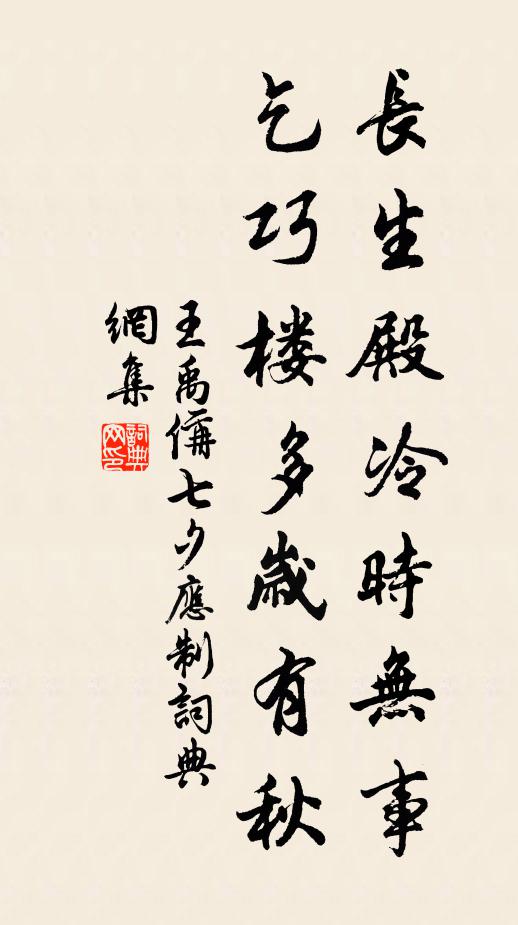 長生殿冷時無事
乞巧楼多歳有秋
王禹偁七夕應制詞典
網集
詞典網印